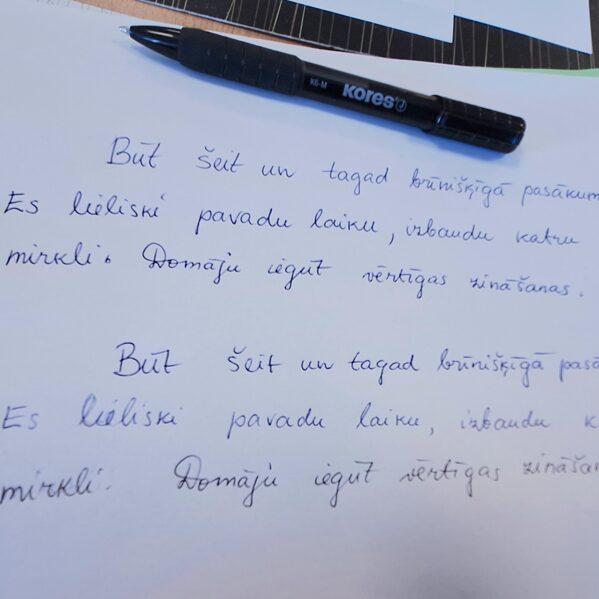 K6-M kores
Būt šeit un tagad brīnišķīgā pasākum
Es lieliski pavadu laiku, izbaudu katru
mirkli. Domāju iegūt vērtīgas zināšanas.
Būt šeit un tagad brīnišķīgā pasā
Es lieliski pavadu laiku, izbaudu k
mirkli. Domāju iegūt vērtīgas zināšan